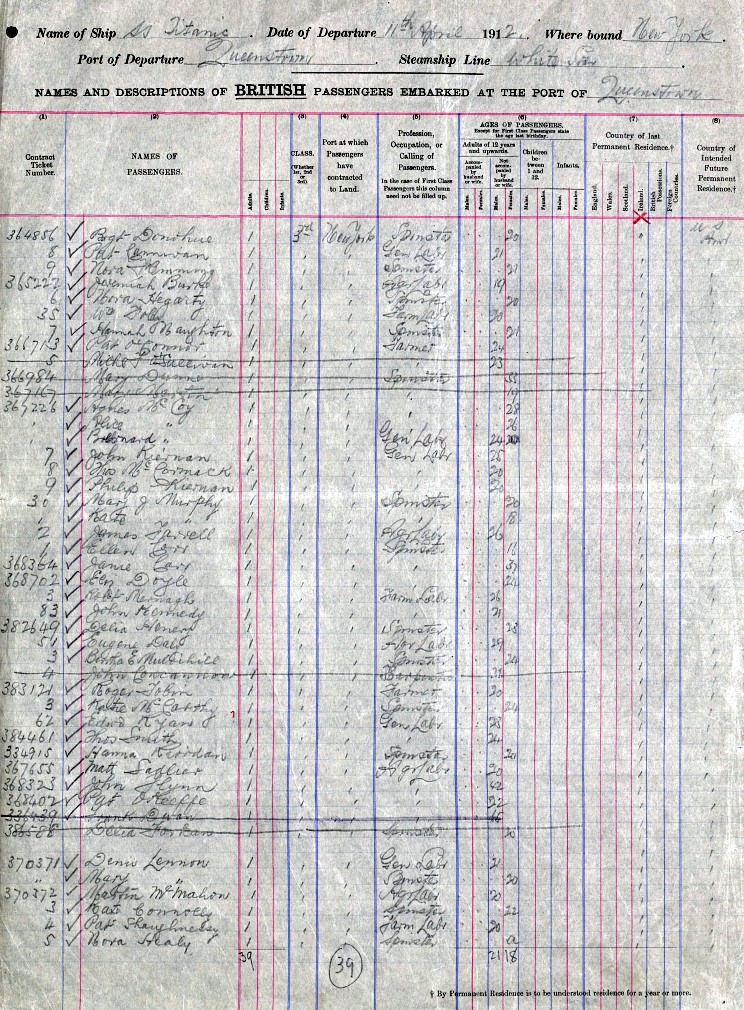 Name of Ship SS Titanic Date of Departure 11th April 1912. Where bound New York.
Port of Departure Queenstown. Steamship Line White Star.
NAMES AND DESCRIPTIONS OF BRITISH PASSENGERS EMBARKED AT THE PORT OF Queenstown
(1) (2) (3) (4) (5) (6) (7) (8)
Contract Ticket Number.
NAMES OF PASSENGERS.
Adults. Children. Infants.
CLASS. (Whether 1st, 2nd or 3rd.)
Port at which Passengers have contracted to Land.
Profession, Occupation, or Calling of Passengers.
In the case of First Class Passengers this column need not be filled up.
AGES OF PASSENGERS.
Except for First Class Passengers state the age last birthday.
Adults of 12 years and upwards. Children between 1 and 12. Infants.
Accompanied by husband or wife. Not accompanied by husband or wife.
Males. Females. Males. Females. Males. Females. Males. Females.
Country of last Permanent Residence.†
England. Wales. Scotland. Ireland. British Possessions. Foreign Countries.
Country of Intended Future Permanent Residence.†
364856 ✓ Bgt Donohue 1 3rd New York Spinster 20 U S
8 ✓ Pat 1 Gen Labr 21
9 ✓ Nora Flemming 1 Spinster 21
365222 ✓ Jeremiah Burke 1 Agr Labr 19
6 ✓ Nora Hegarty 1 Spinster 20
35 ✓ Wm Doley 1 Farm Labr 20
7 ✓ Hannah Naughton 1 Spinster 21
366713 ✓ Pat O'Connor 1 Farmer 24
5 Sullivan 1 23
366984 Mary Dunne 1 Spinster
367167 Mary 1 19
367226 ✓ Agnes McCoy 1 28
" ✓ Alice " 1 26
" ✓ Bernard " 1 Gen Labr 24
7 ✓ John Kiernan 1 Gen Labr 25
8 ✓ Thos McCormack 1 20
9 ✓ Philip Kiernan 1 20
30 ✓ Mary J Murphy 1 Spinster 20
" ✓ Kate " 1 18
2 ✓ James Farrell 1 Agr Labr 26
✓ Ellen Carr 1 Spinster 16
368364 ✓ Janie Carr 1 37
368702 ✓ Eliz Doyle 1 24
3 ✓ Robt Mernagh 1 Farm Labr 26
83 ✓ John Kennedy 1 21
382649 ✓ Delia Henery 1 Spinster 23
51 ✓ Eugene Daly 1 Agr Labr 29
3 ✓ Bertha E Mulvihill 1 Spinster 24
4 John Concannon 1 Carpenter 21
383121 ✓ Roger Tobin 1 Farmer 20
3 ✓ Katie McCarthy 1 Spinster 24
62 ✓ Edwd Ryan 1 Gen Labr 23
384461 ✓ Thos Smith 1 24
334915 ✓ Hanna Riordan 1 Spinster 20
367655 ✓ Matt Sadlier 1 Agr Labr 20
368323 ✓ John Flynn 1 42
368402 ✓ Pat O'Keeffe 1 22
336439 Frank Dwan 1
386588 Delia 1 Spinster 20
370371 ✓ Denis Lennon 1 Gen Labr 21
" ✓ Mary " 1 Spinster 20
370372 ✓ Martin McMahon 1 Agr Labr 20
3 ✓ Kate Connolly 1 Spinster 22
4 ✓ Pat Shaughnessy 1 Farm Labr 20
5 ✓ Nora Healy 1 Spinster
39 39 21 18
† By Permanent Residence is to be understood residence for a year or more.